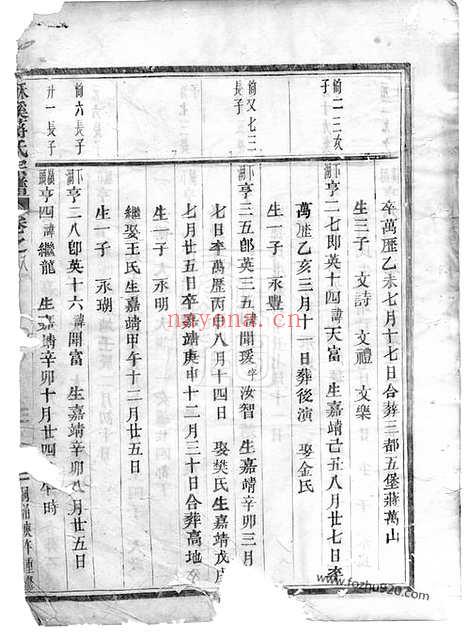 卒萬歷乙未七月十七日合葬三都五堡蔣萬山
生三子 文詩 文禮 文樂
俯二三次子
亨二七即英十四諱天富 生嘉靖己丑八月廿七日卒
萬歷乙亥三月十一日葬後演 娶金氏
生一子 永豐
俯又七三長子
亨三五郎英三五諱開瑗字汝智 生嘉靖辛卯三月
七日卒萬歷丙申八月十四日 娶樊氏生嘉靖戊戌
七月廿五日卒嘉靖庚申十二月三十日合葬高地
生一子 永明
繼娶王氏生嘉靖甲午十二月廿五日
生一子 永瑚
俯六長子
亨二八即英十六諱開富 生嘉靖辛卯八月廿五日
廿一長子
亨四諱繼龍 生嘉靖辛卯十月廿四 午時
溪蔣氏宗譜 卷之八
nayona.cn
www.fozhu920.com